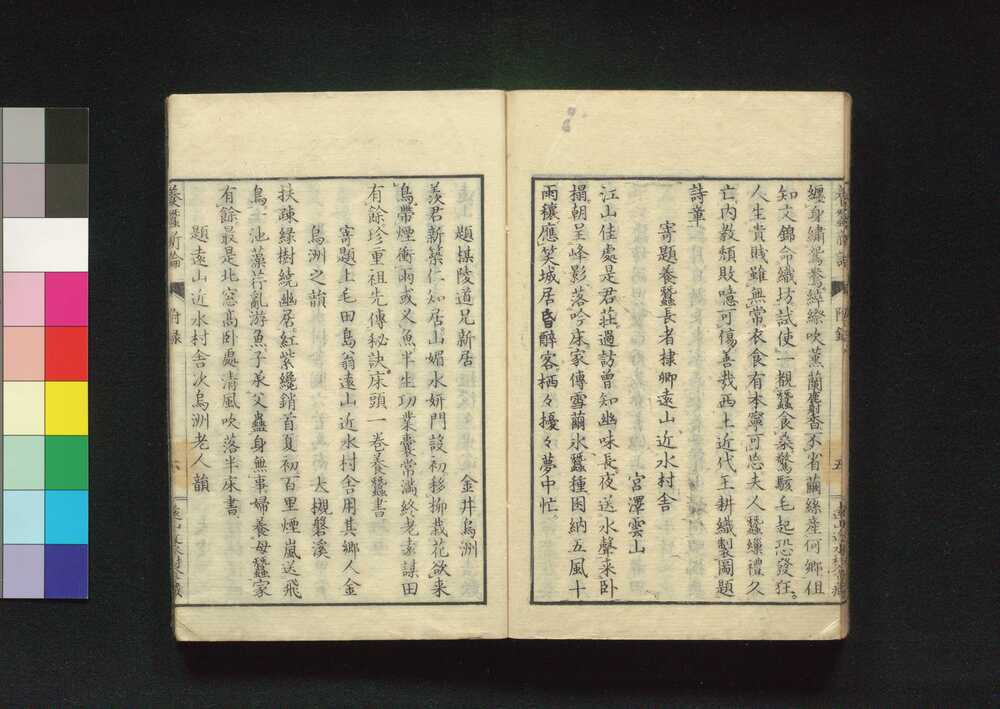 纏身繡鴦鴦綷縩吹薰蘭麝杳不省繭絲産何鄉但
知文錦命織坊試使一覩蠶食桑驚駭毛起恐發狂
人生貴賤雖無常衣食有本寧可忘夫人蠶繅禮久
亡内教頽敗噫可傷善哉西土近代王耕織製圖題
詩章
寄題養蠶長者棣卿遠山近水村舍
宮澤雲山
江山佳處是君莊過訪曾知幽味長夜送水聲來卧
榻朝呈峰影落吟床家傳雪繭氷蠶種囷納五風十
雨穰應笑城居昏醉客栖々擾々夢中忙
題棋陵道兄新居
金井烏洲
羨君新築仁知居山媚水妍門設初移柳栽花欲來
鳥帶煙衝雨或叉魚半生功業囊常滿終老素謀田
有餘珍重祖先傳秘訣床頭一卷養蠶書
寄題上毛田島翁遠山近水村舍用其鄉人金
烏洲之韻
大槻磐溪
扶疎綠樹繞幽居紅紫纔銷首夏初百里煙嵐送飛
鳥一池藻荇亂游魚子承父蠱身無事婦養母蠶家
有餘最是北窓高卧處清風吹落半床書
題遠山近水村舍次烏洲老人韻
養蠶新論
附錄
六